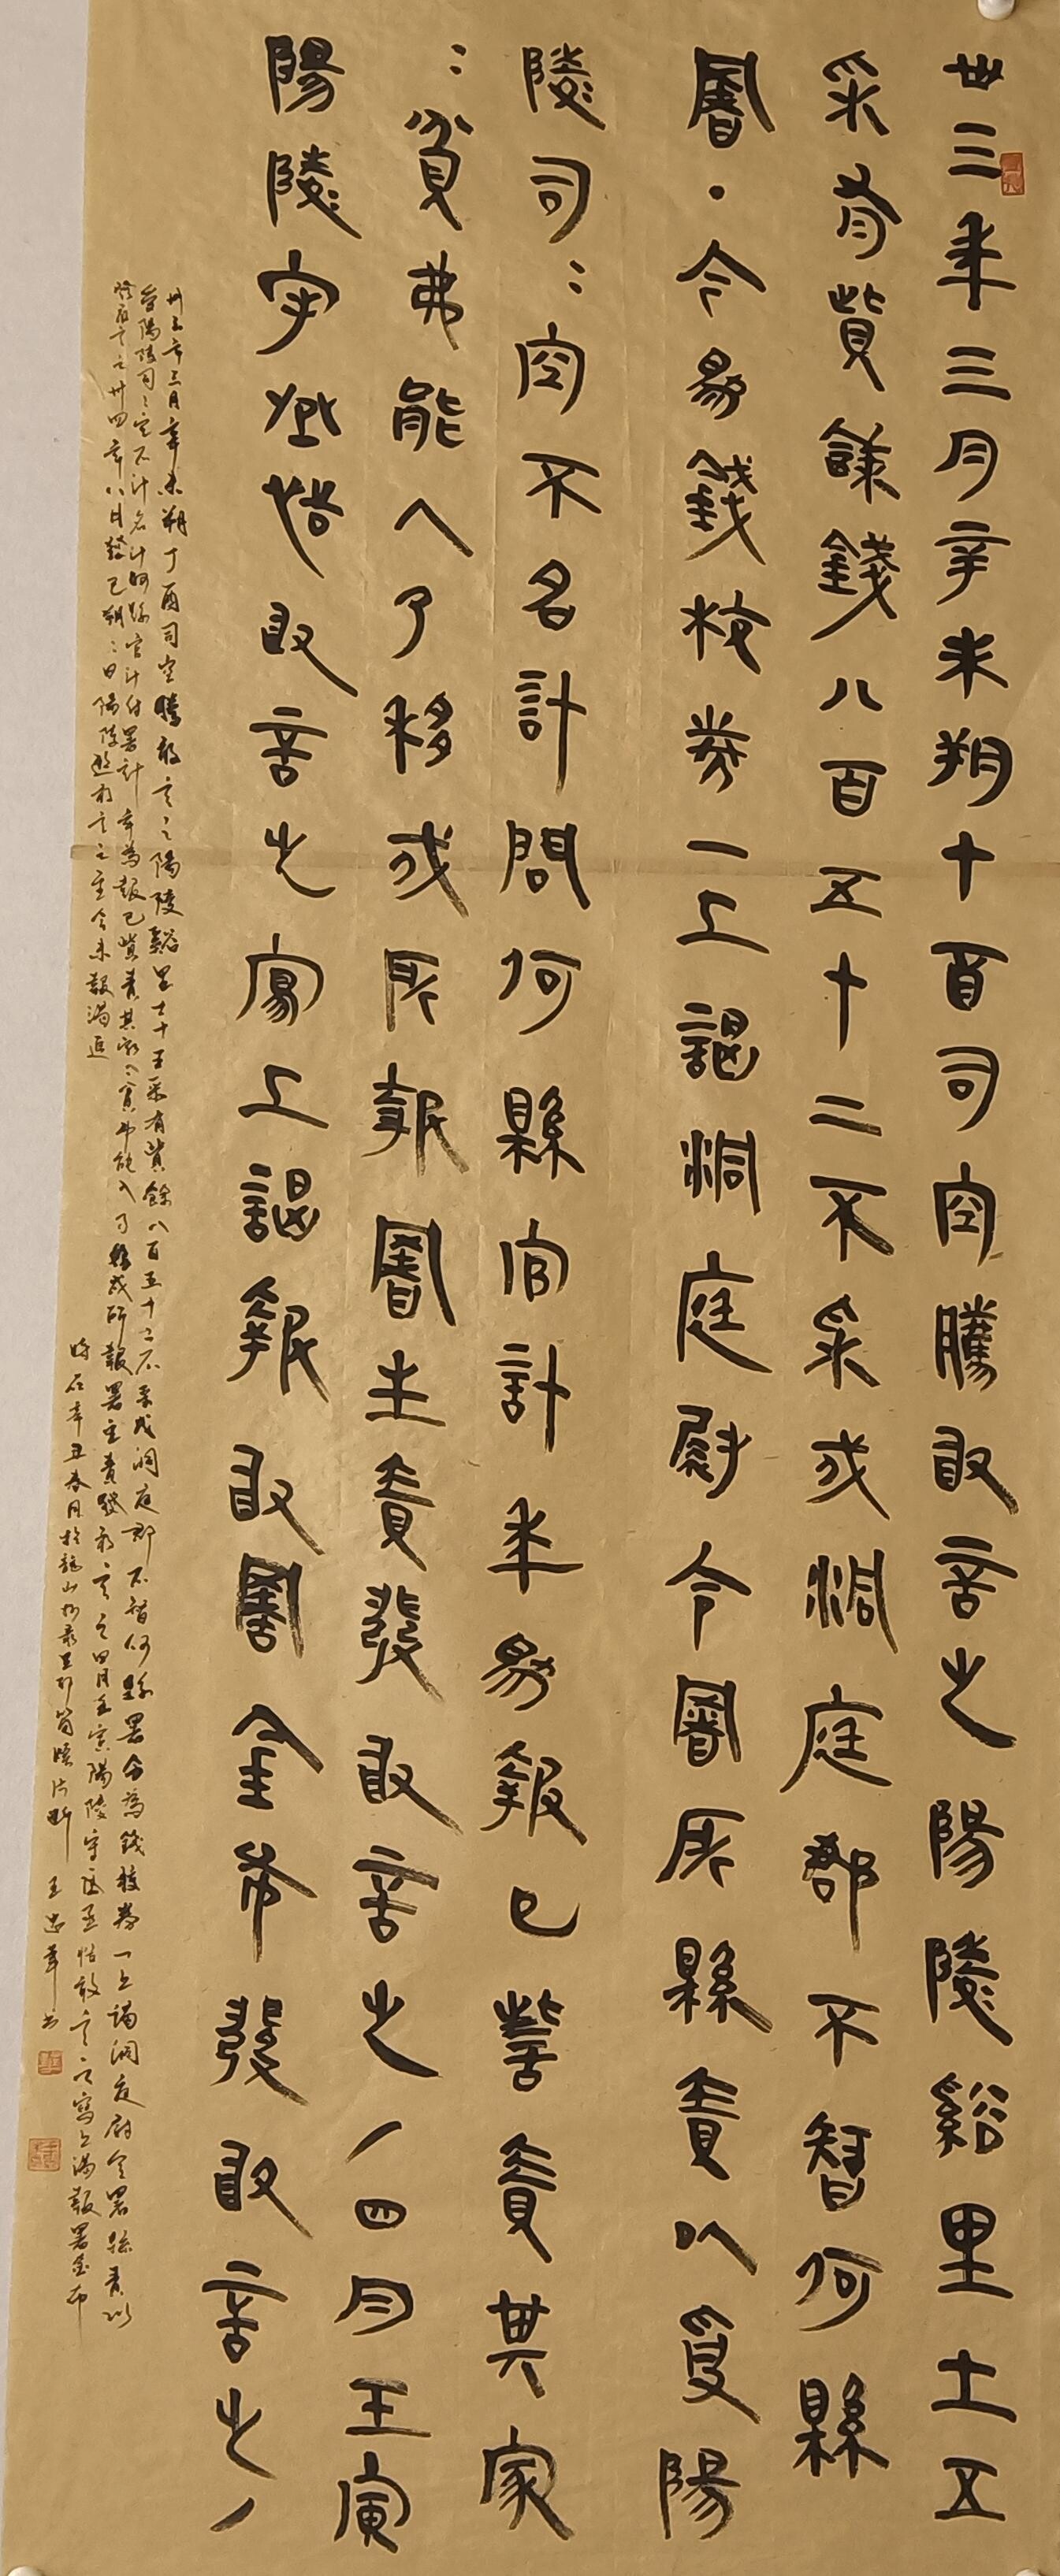 卅三年三月辛未朔丁酉司空騰敢言之陽陵谿里士五
采有貲餘錢八百五十二不采戍洞庭郡不智何縣
署・今為錢校券一上謁洞庭尉令署所縣責以受陽
陵司〓空不名計問何縣官計年為報已訾責其家
〓貧弗能入乃移戍所報署主責發敢言之／四月壬寅
陽陵守丞恬敢言之寫上謁報敢署金布發敢言之／
卅三年三月辛未朔丁酉司空騰敢言之陽陵谿里士五采有貲餘八百五十二不采戍洞庭郡不智何縣署今為錢校券一上謁洞庭尉令署縣責以
受陽陵司〻空不計名計何縣官計付署計年為報已貲責其家〻貧弗能入乃移戍所報署主責發敢言之四月壬寅陽陵守丞恬敢言之寫上謁報署金布
發敢言之卅四年八月癸巳朔〻日陽陵敢言之至今未報謁追
時在辛丑春月於龍山 王忠 書